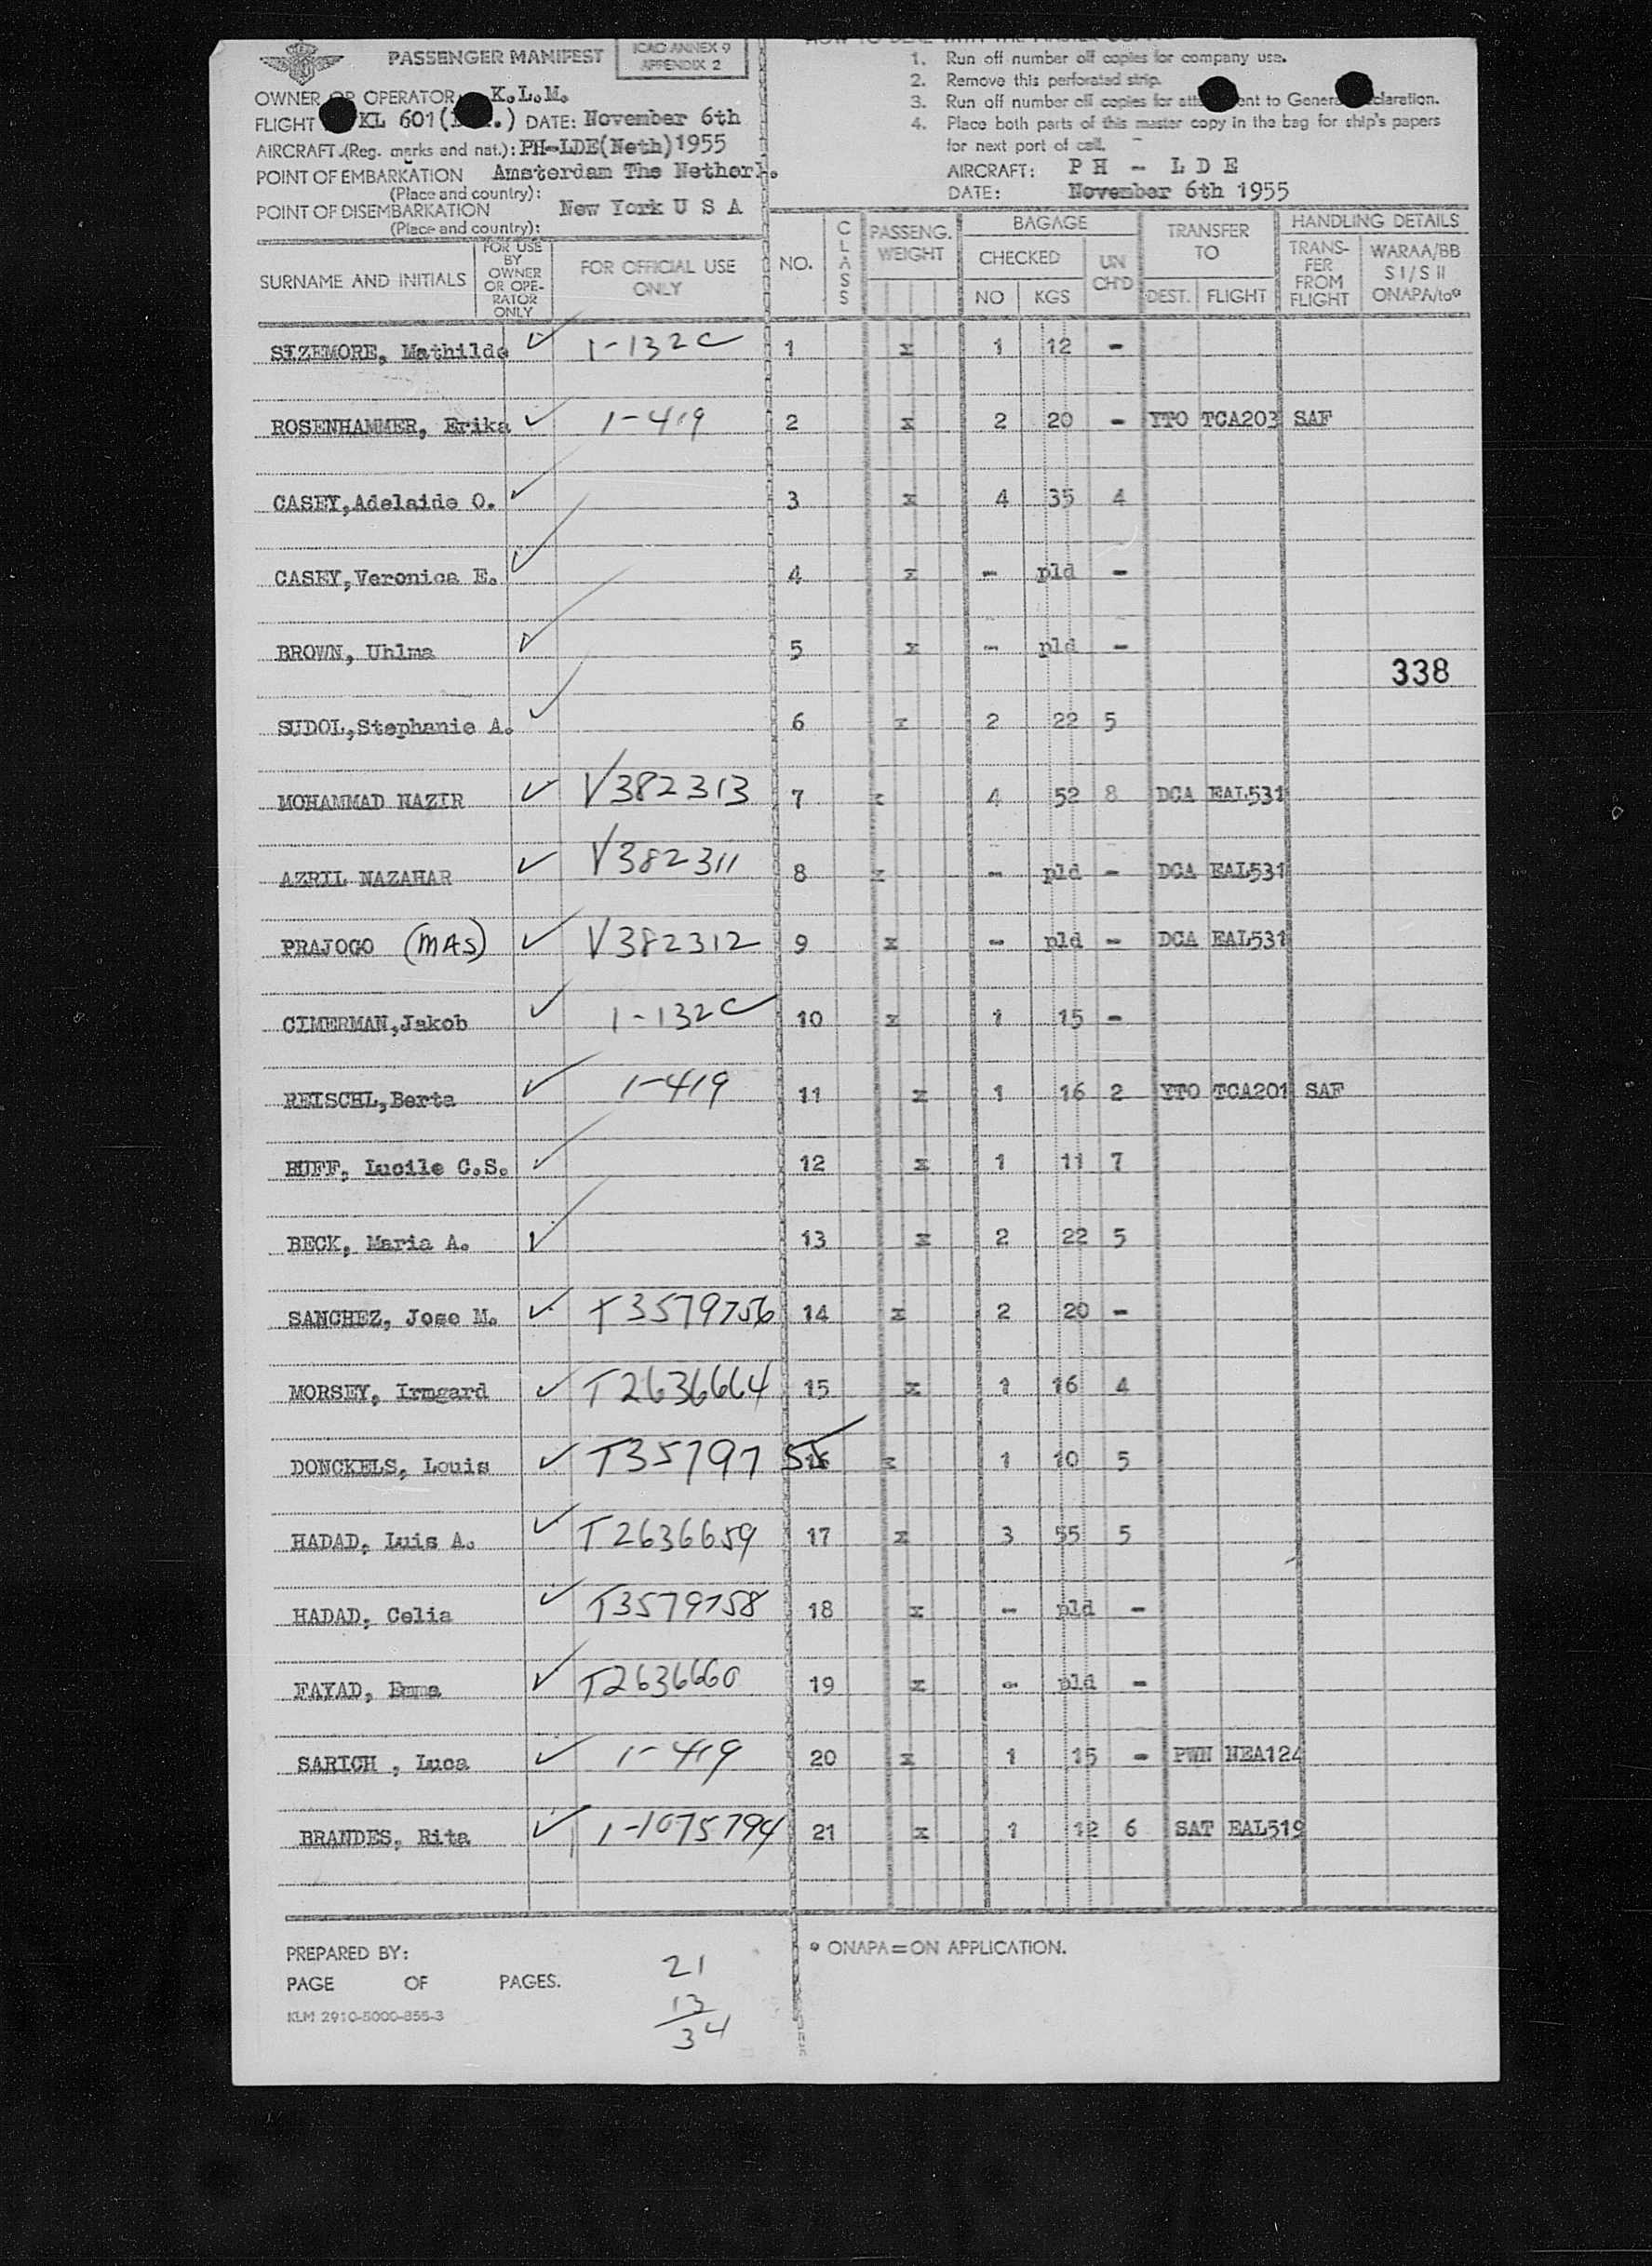 PASSENGER MANIFEST
ICAO ANNEX 9
APPENDIX 2
OWNER OR OPERATOR: K.L.M.
FLIGHT KL 601( .) DATE: November 6th
AIRCRAFT.(Reg. marks and nat.): PH-LDE(Neth) 1955
POINT OF EMBARKATION Amsterdam The Netherl.
(Place and country):
POINT OF DISEMBARKATION New York U S A
(Place and country):
HOW TO DEAL WITH THE MASTER
1. Run off number off copies for company use.
2. Remove this perforated strip.
3. Run off number off copies for attachment to General Declaration.
4. Place both parts of this master copy in the bag for ship's papers
for next port of call.
AIRCRAFT: P H - L D E
DATE: November 6th 1955
SURNAME AND INITIALS FOR USE BY OWNER OR OPE-RATOR ONLY FOR OFFICIAL USE ONLY NO. CLASS PASSENG. WEIGHT BAGAGE CHECKED NO KGS UN CH'D TRANSFER TO DEST. FLIGHT HANDLING DETAILS TRANS-FER FROM FLIGHT WARAA/BB S I / S II ONAPA/to*
SIZEMORE, Mathilde ✓ 1-132C 1 x 1 12 -
ROSENHAMMER, Erika ✓ 1-419 2 x 2 20 - YTO TCA203 SAF
CASEY,Adelaide O. ✓ 3 x 4 35 4
CASEY,Veronica E. ✓ 4 x - pld -
BROWN, Uhlma ✓ 5 x - pld -
338
SUDOL,Stephanie A. ✓ 6 x 2 22 5
MOHAMMAD NAZIR ✓ V382313 7 x 4 52 8 DCA EAL531
AZRIL NAZAHAR ✓ V382311 8 x - pld - DCA EAL531
PRAJOGO (MAS) ✓ V382312 9 x - pld - DCA EAL531
CIMERMAN,Jakob ✓ 1-132C 10 x 1 15 -
REISCHL,Berta ✓ 1-419 11 x 1 16 2 YTO TCA201 SAF
HUFF, Lucile C.S. ✓ 12 x 1 11 7
BECK, Maria A. ✓ 13 x 2 22 5
SANCHEZ, Jose M. ✓ T3579756 14 x 2 20 -
MORSEY, Irmgard ✓ T2636664 15 x 1 16 4
DONCKELS, Louis ✓ T3579755 16 x 1 10 5
HADAD, Luis A. ✓ T2636659 17 x 3 55 5
HADAD, Celia ✓ T3579758 18 x - pld -
FAYAD, Emma ✓ T2636660 19 x - pld -
SARICH , Luca ✓ 1-419 20 x 1 15 - PWN NEA124
BRANDES, Rita ✓ 1-1075794 21 x 1 12 6 SAT EAL519
PREPARED BY:
PAGE OF PAGES.
KLM 2910-5000-855-3
21
13
34
* ONAPA=ON APPLICATION.